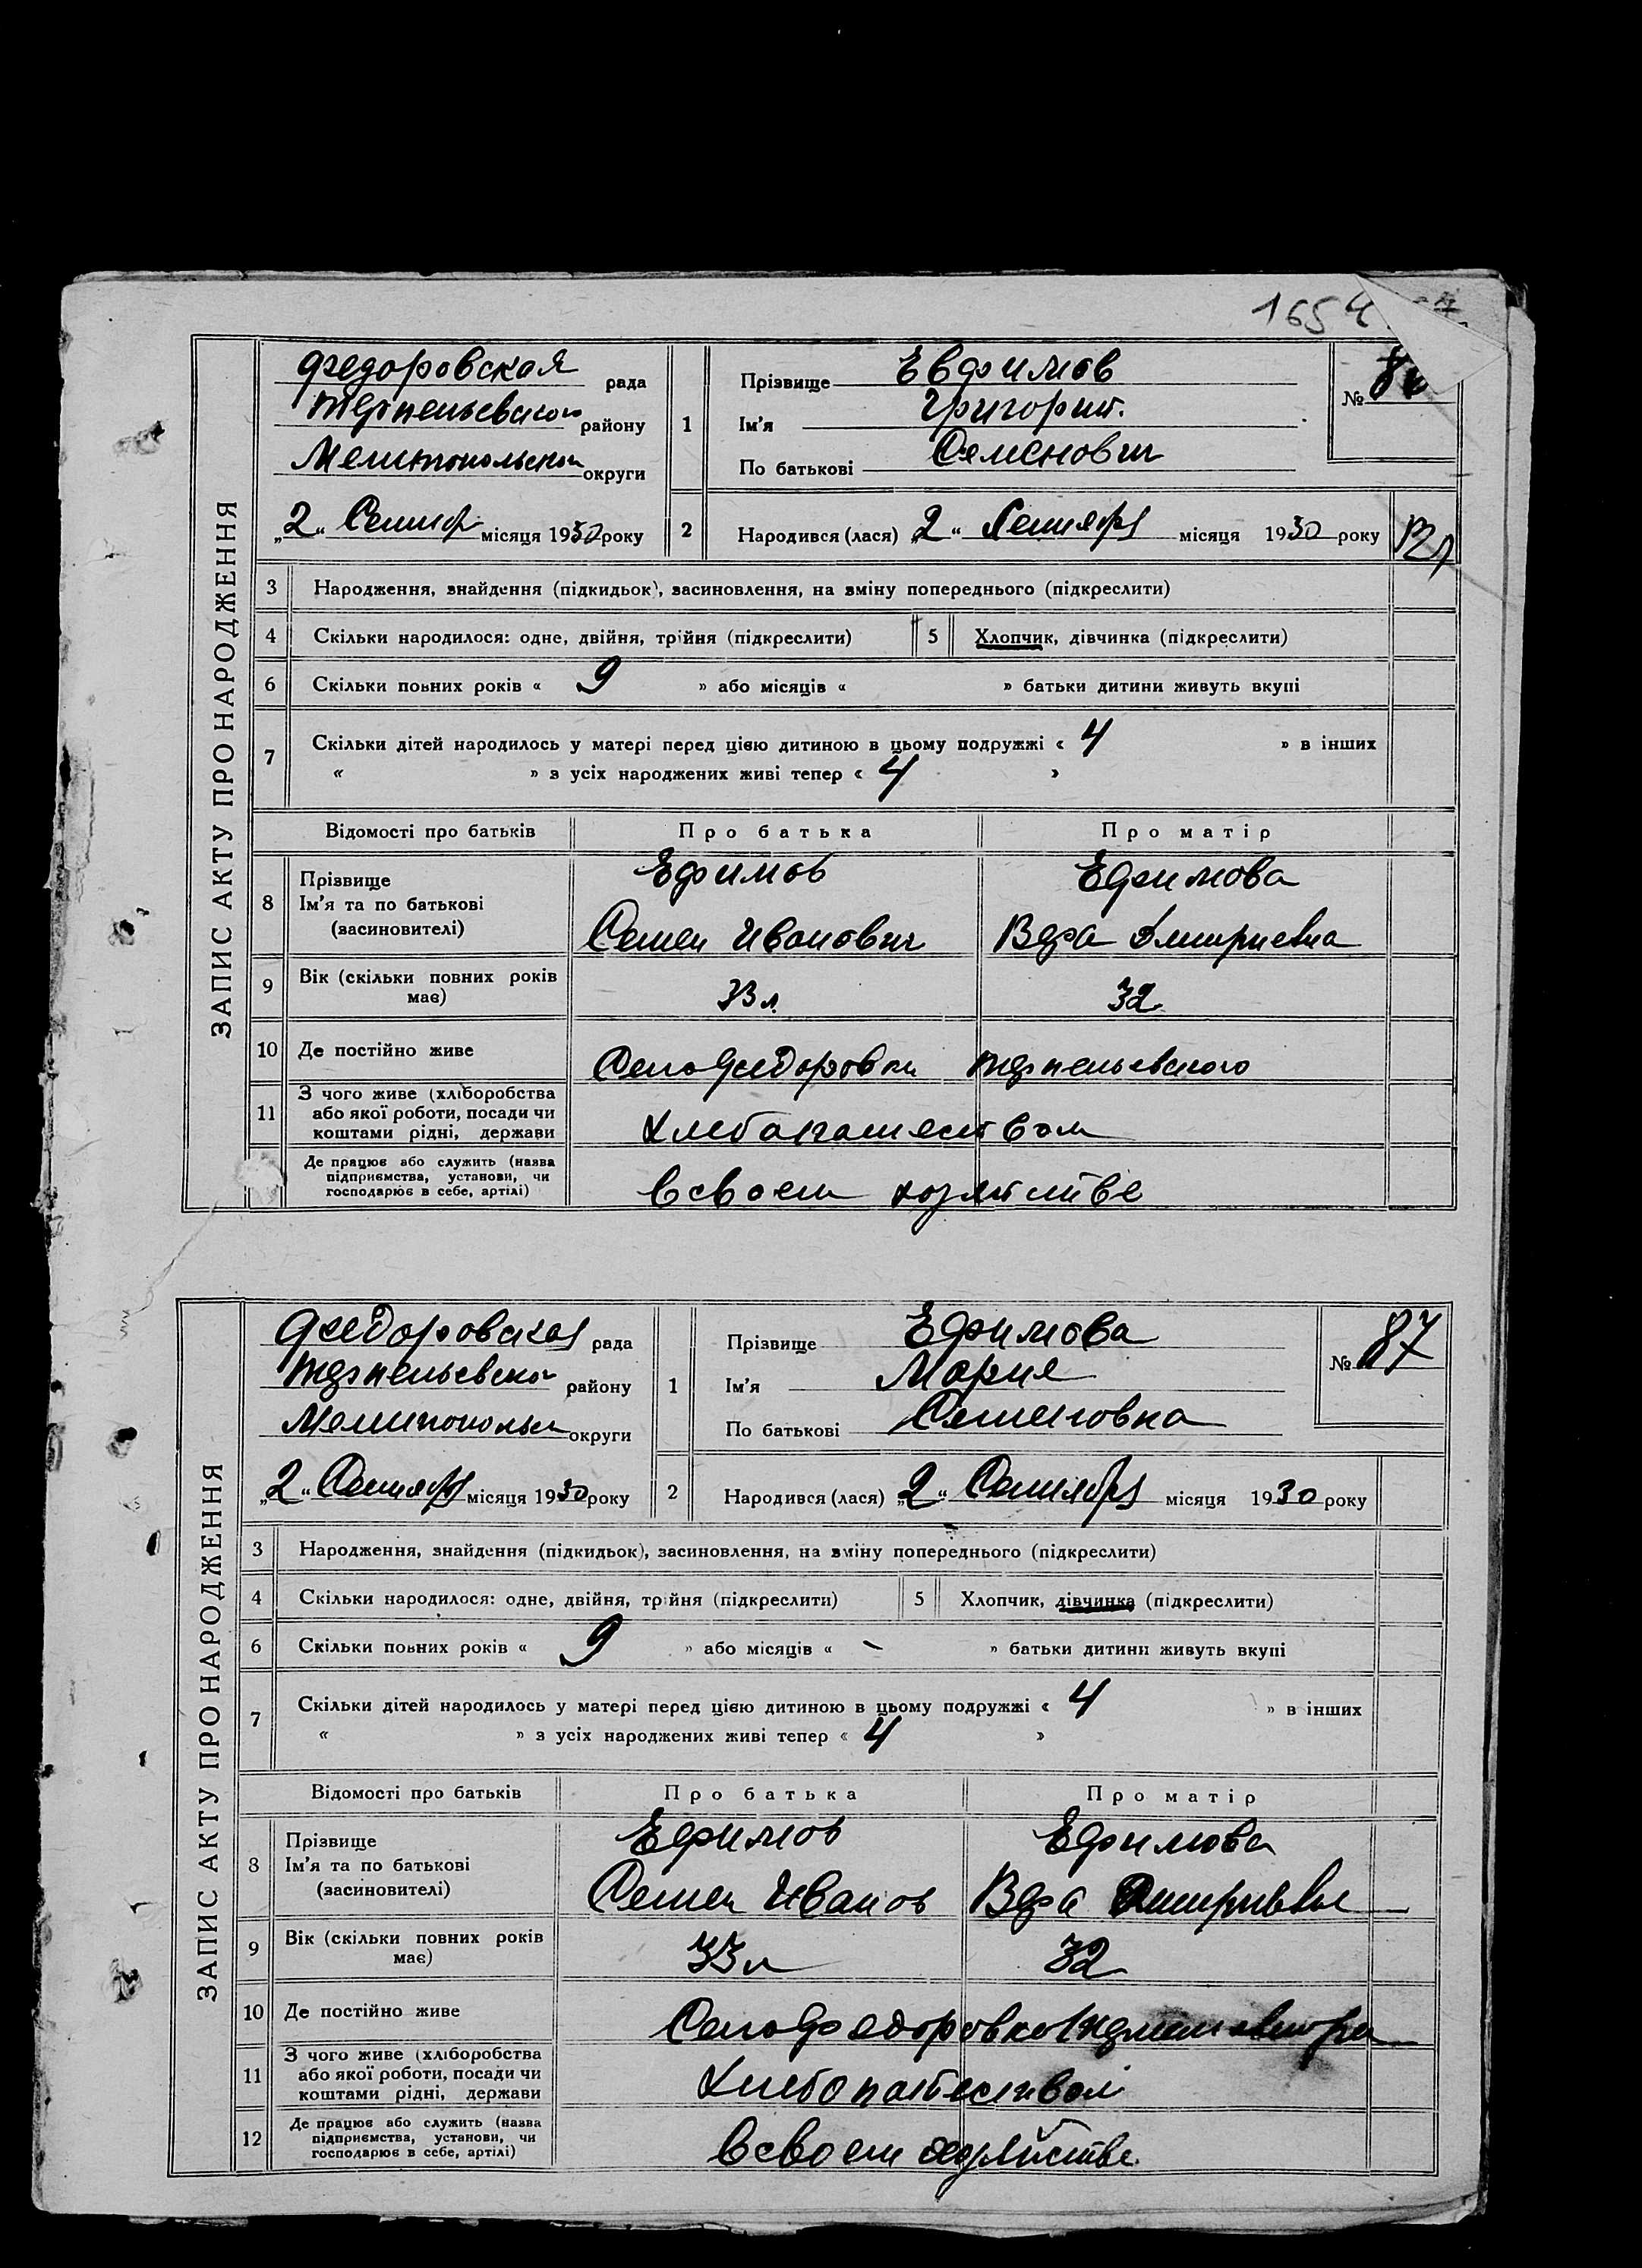 1654
ЗАПИС АКТУ ПРО НАРОДЖЕННЯ
Федоровская рада
Терпеньевского району
Мелитопольской округи
„2“ Сентяб місяця 1930 року
1
Прізвище Евфимов
Ім'я Григорий.
По батькові Семенович
№ 86
2
Народився (лася) „2“ Сентября місяця 1930 року
3 Народження, знайдення (підкидьок), засиновлення, на зміну попереднього (підкреслити)
4 Скільки народилося: одне, двійня, трійня (підкреслити) 5 Хлопчик, дівчинка (підкреслити)
6 Скільки повних років « 9 » або місяців « » батьки дитини живуть вкупі
7 Скільки дітей народилось у матері перед цією дитиною в цьому подружжі « 4 » в інших
« » з усіх народжених живі тепер « 4 »
Відомості про батьків Про батька Про матір
8 Прізвище Ім'я та по батькові (засновителі)
Ефимов Ефимова
Семен Иванович Вера Дмитриевна
9 Вік (скільки повних років має) 33 л 32
10 Де постійно живе Село Федоровка Терпеньевского
11 З чого живе (хліборобства або якої роботи, посади чи коштами рідні, держави Хлебопашеством
Де працює або служить (назва підприємства, установи, чи господарює в себе, артілі) в своем хозяйстве
ЗАПИС АКТУ ПРО НАРОДЖЕННЯ
Федоровская рада
Терпеньевской району
Мелитопольск округи
„2“ Сентября місяця 1930 року
1
Прізвище Ефимова
Ім'я Мария
По батькові Семеновна
№ 87
2
Народився (лася) „2“ Сентября місяця 1930 року
3 Народження, знайдення (підкидьок), засиновлення, на зміну попереднього (підкреслити)
4 Скільки народилося: одне, двійня, трійня (підкреслити) 5 Хлопчик, дівчинка (підкреслити)
6 Скільки повних років « 9 » або місяців « - » батьки дитини живуть вкупі
7 Скільки дітей народилось у матері перед цією дитиною в цьому подружжі « 4 » в інших
« » з усіх народжених живі тепер « 4 »
Відомості про батьків Про батька Про матір
8 Прізвище Ім'я та по батькові (засиновителі)
Ефимов Ефимова
Семен Иванов Вера Дмитриевна
9 Вік (скільки повних років має) 33 л 32
10 Де постійно живе Село Федоровка
11 З чого живе (хліборобства або якої роботи, посади чи коштами рідні, держави Хлебопашеством
12 Де працює або служить (назва підприємства, установи, чи господарює в себе, артілі) в своем хозяйстве.